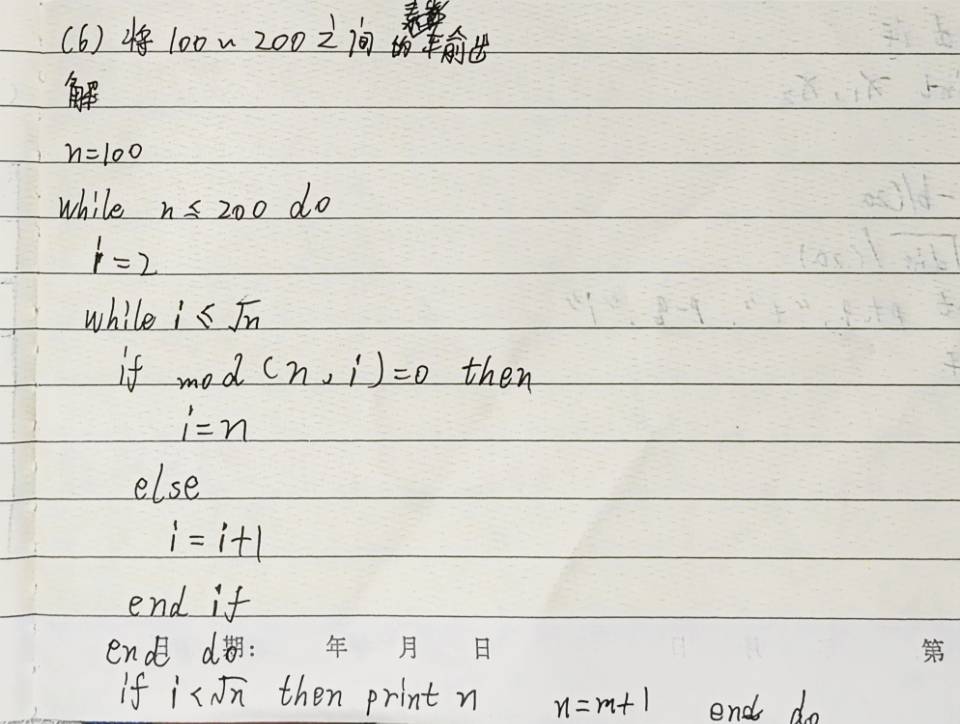 (6) 将 100~200 之间 的素数输出
解
n=100
while n≤200 do
i=2
while i≤√n
if mod(n,i)=0 then
i=n
else
i=i+1
end if
end do
期: 年 月 日 第
if i<√n then print n n=m+1 end do